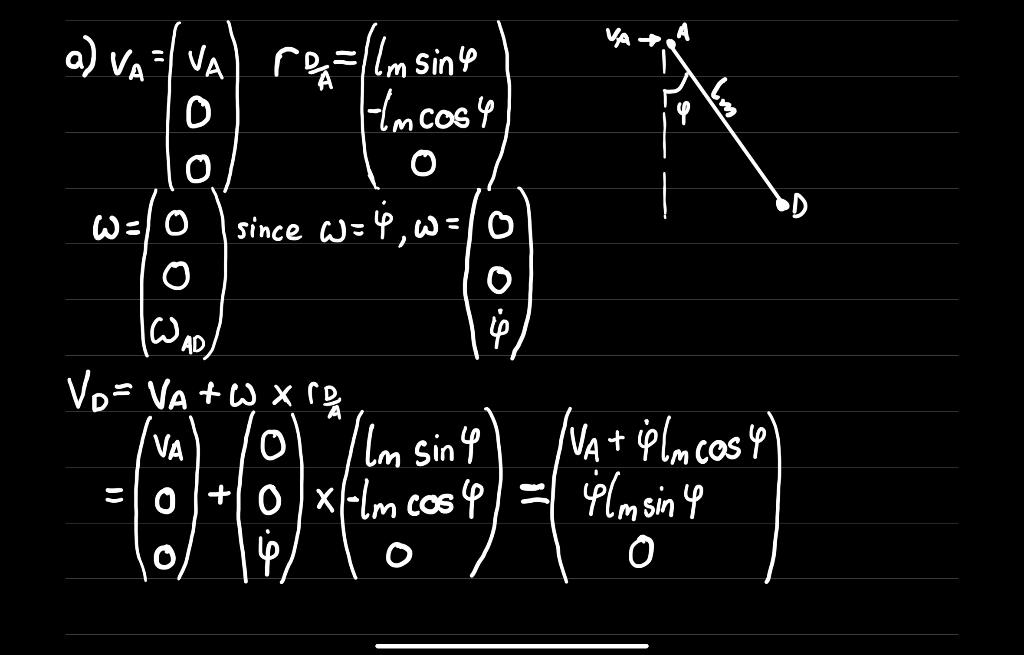 a) v_A = (v_A, 0, 0) r_{D/A} = (l_m sin φ, -l_m cos φ, 0)
v_A → A
φ l_m
D
ω = (0, 0, ω_{AD}) since ω = φ̇, ω = (0, 0, φ̇)
V_D = V_A + ω × r_{D/A}
= (V_A, 0, 0) + (0, 0, φ̇) × (l_m sin φ, -l_m cos φ, 0) = (V_A + φ̇ l_m cos φ, φ̇ l_m sin φ, 0)